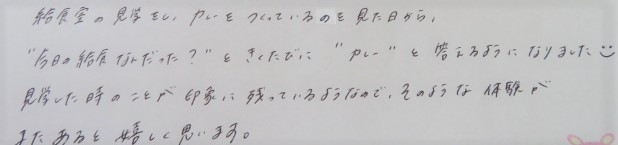 給食室の見学をし、カレーをつくっているのを見た日から、
"今日の給食なんだった？"ときくたびに "カレー" と答えるようになりました☺
見学した時のことが印象に残っているようなので、そのような体験が
またあると嬉しく思います。